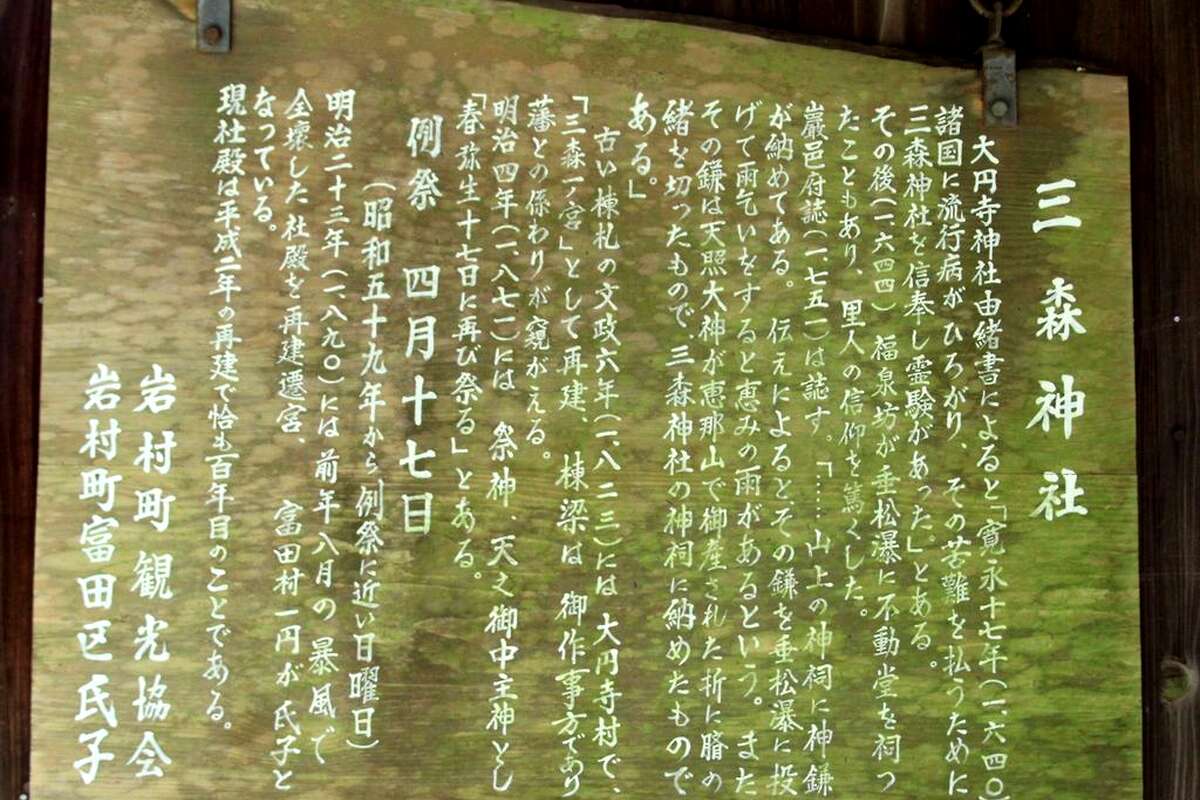 三森神社
大円寺神社由緒書によると「寛永十七年(一、六四〇)
諸国に流行病がひろがり、その苦難を払うために
三森神社を信奉し霊験があった。」とある。
その後(一、六四四)福泉坊が垂松瀑に不動堂を祠っ
たこともあり、里人の信仰を篤くした。
巖邑府誌(一、七五一)は誌す。「……山上の神祠に神鎌
が納めてある。伝えによるとその鎌を垂松瀑に投
げて雨乞いをすると恵みの雨があるという。また
その鎌は天照大神が恵那山で御産された折に臍の
緒を切ったもので、三森神社の神祠に納めたもので
ある。」
古い棟札の文政六年(一、八二三)には大円寺村で、
「三森一ノ宮」として再建、棟梁は御作事方であり
藩との係わりが窺がえる。
明治四年(一、八七一)には祭神、天之御中主神とし
「春弥生十七日に再び祭る」とある。
例祭 四月十七日
(昭和五十九年から例祭に近い日曜日)
明治二十三年(一、八九〇)には前年八月の暴風で
全壊した社殿を再建遷宮、富田村一円が氏子と
なっている。
現社殿は平成二年の再建で恰も百年目のことである。
岩村町観光協会
岩村町富田区氏子